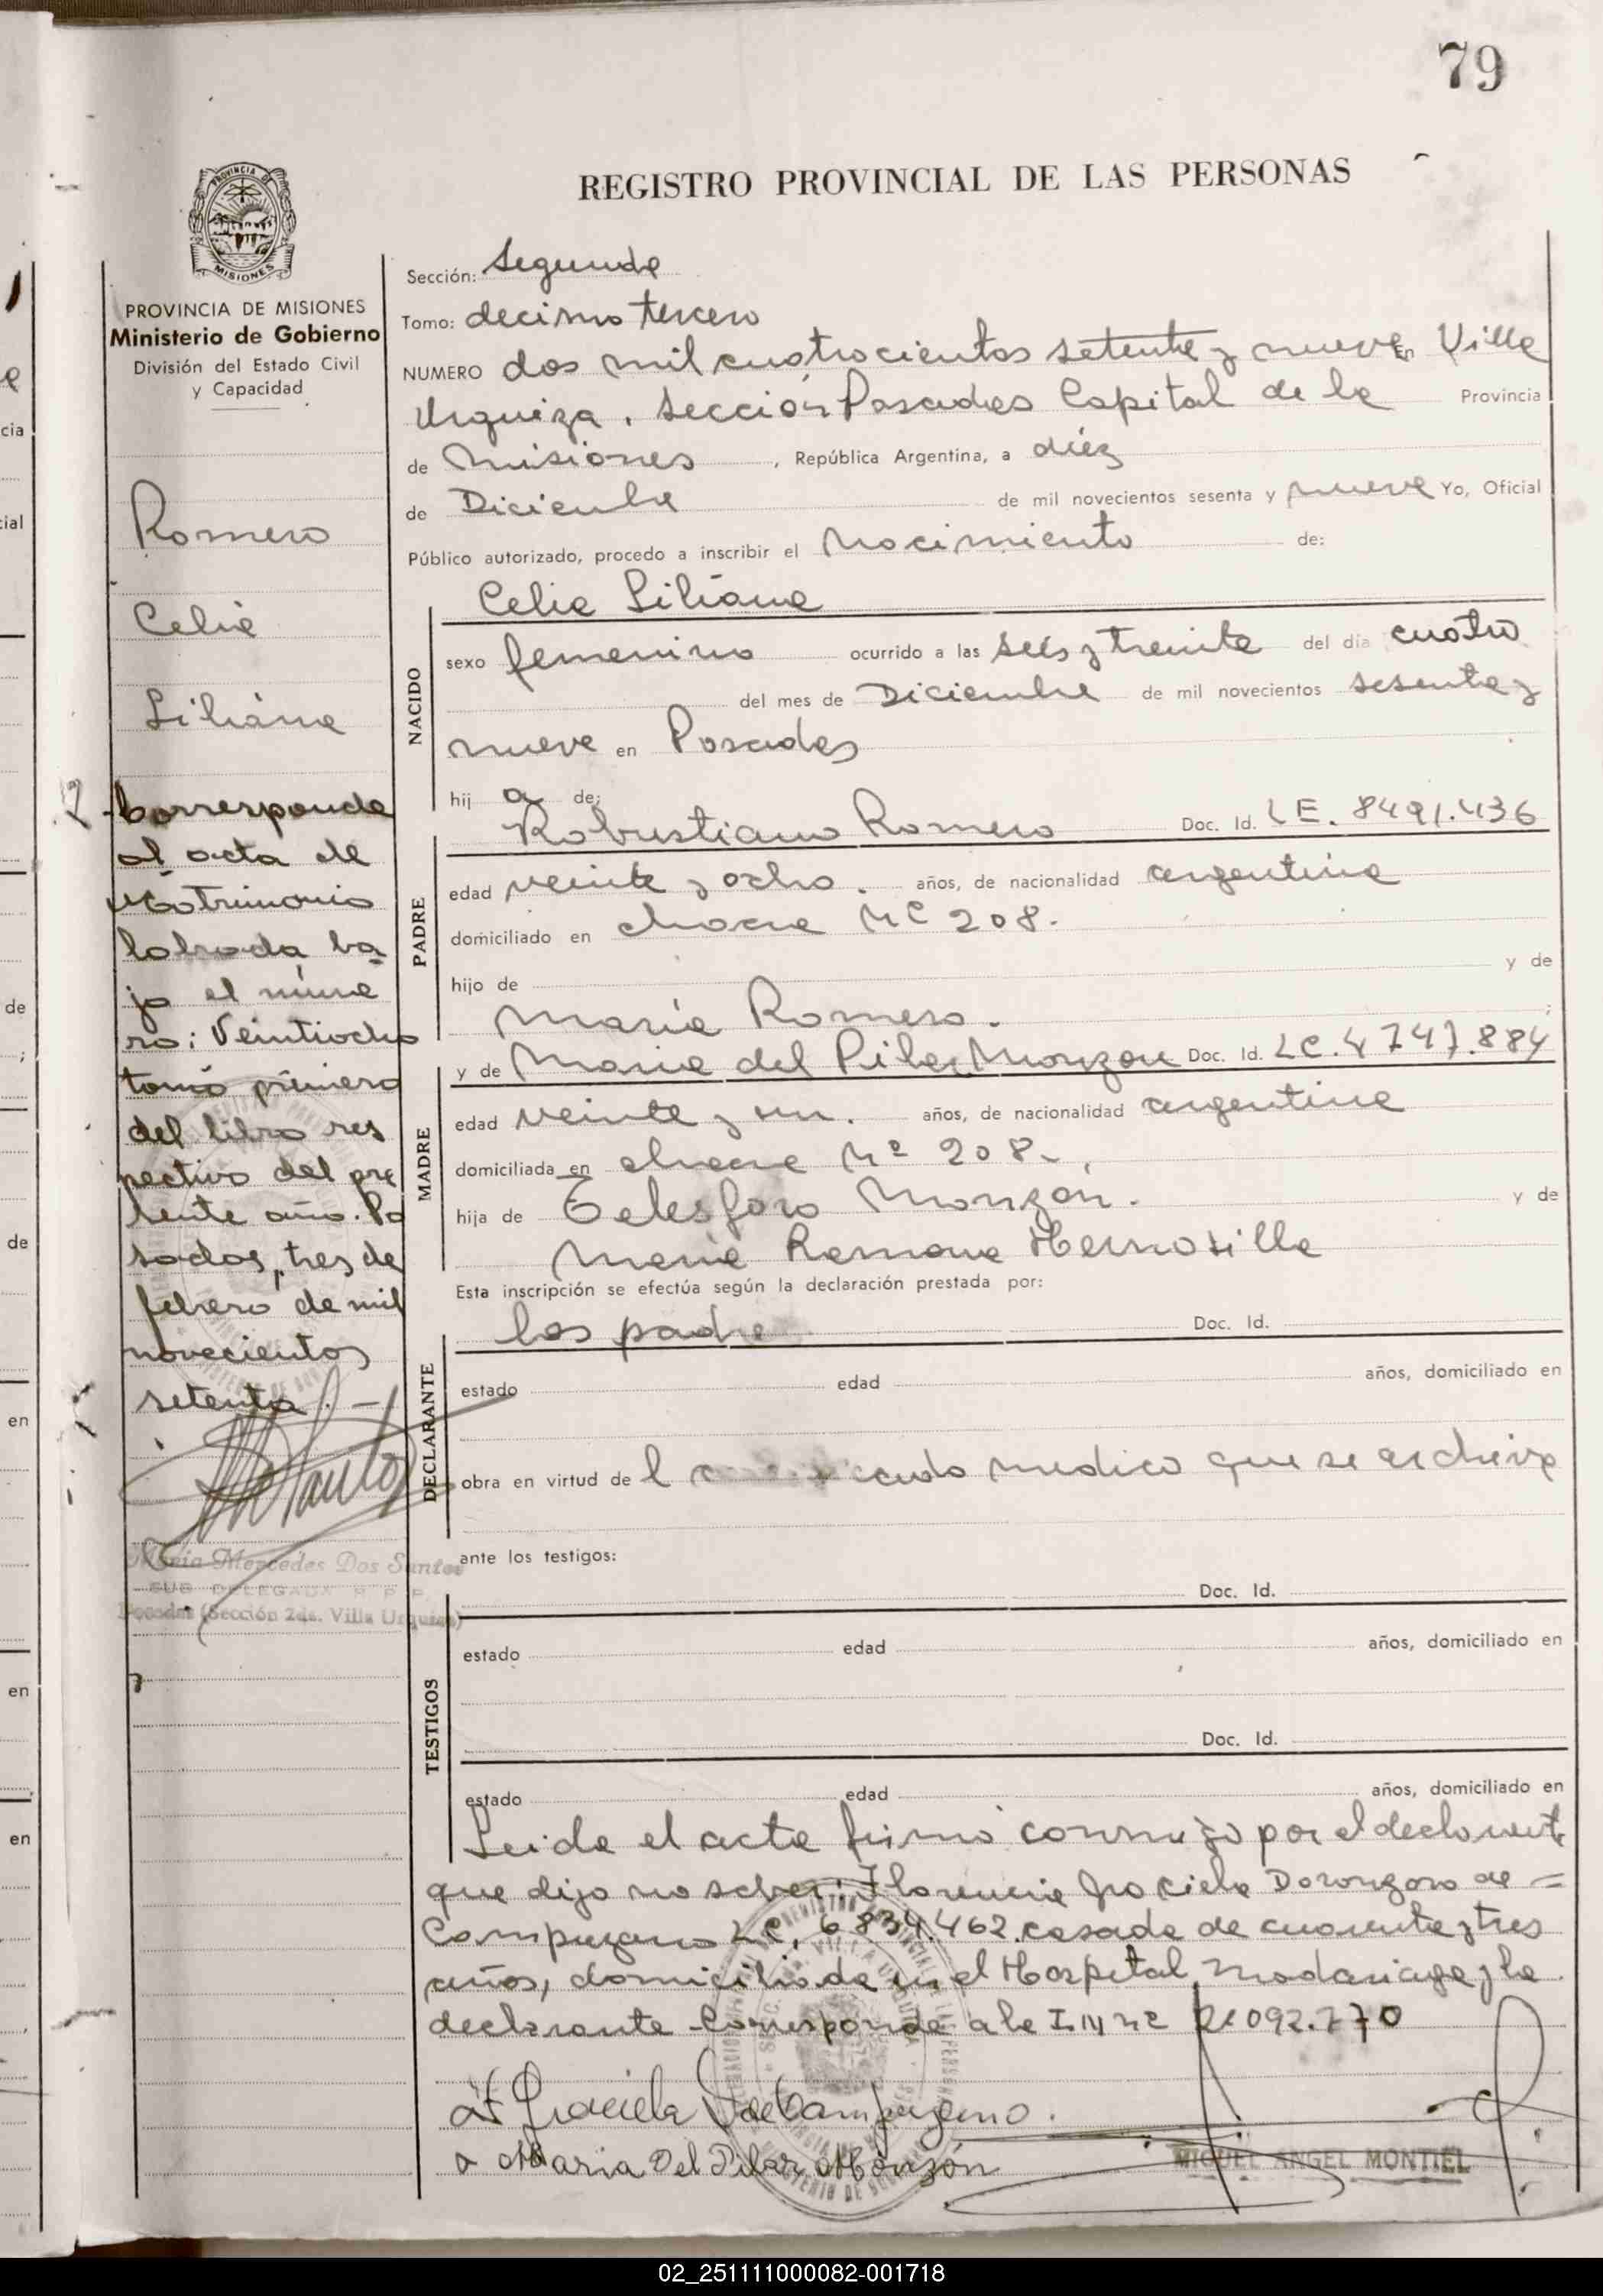 79
REGISTRO PROVINCIAL DE LAS PERSONAS
PROVINCIA DE
MISIONES
PROVINCIA DE MISIONES
Ministerio de Gobierno
División del Estado Civil
y Capacidad
Romero
Celia
Liliana
Corresponde
al acta de
Matrimonio
labrada ba
jo el núme
ro: Veintiocho
tomo primero
del libro res
pectivo del pre
sente año. Po
sadas, tres de
febrero de mil
novecientos
setenta. -
Maria Mercedes Dos Santos
SUB DELEGADA R P P
Posadas (Sección 2da. Villa Urquiza)
Sección: Segunda
Tomo: decimo tercero
NUMERO dos mil cuatrocientos setenta y nueve en Villa
Urquiza, Sección Posadas Capital de la Provincia
de Misiones, República Argentina, a diez
de Diciembre de mil novecientos sesenta y nueve Yo, Oficial
Público autorizado, procedo a inscribir el Nacimiento de:
Celia Liliana
NACIDO
sexo femenino ocurrido a las seis y treinta del día cuatro
del mes de Diciembre de mil novecientos sesenta y
nueve en Posadas
hij a de:
Robustiano Romero Doc. Id. LE. 8491.436
PADRE
edad veinte y ocho. años, de nacionalidad argentina
domiciliado en chacra Nº 208.
hijo de y de
María Romero. ;
y de Maria del Pilar Monzon Doc. Id. LC. 4747.884
MADRE
edad veinte y un. años, de nacionalidad argentina
domiciliada en chacra Nº 208.
hija de Telesforo Monzón. y de
María Ramona Hermosilla
Esta inscripción se efectúa según la declaración prestada por:
los padre Doc. Id.
DECLARANTE
estado edad años, domiciliado en
obra en virtud de l medico que se archiva
ante los testigos:
Doc. Id.
TESTIGOS
estado edad años, domiciliado en
Doc. Id.
estado edad años, domiciliado en
Leida el acta firmó conmigo por el declarante
que dijo no saber: Florencia Graciela Doronzoro de =
Campuzano LC. 6.834.462 casada de cuarenta y tres
años, domiciliada en el Hospital Madariaga y la
declarante Corresponde a la I. Nº
Graciela de Campuzano.
a Maria Del Pilar Monzón
MIGUEL ANGEL MONTIEL
02_251111000082-001718